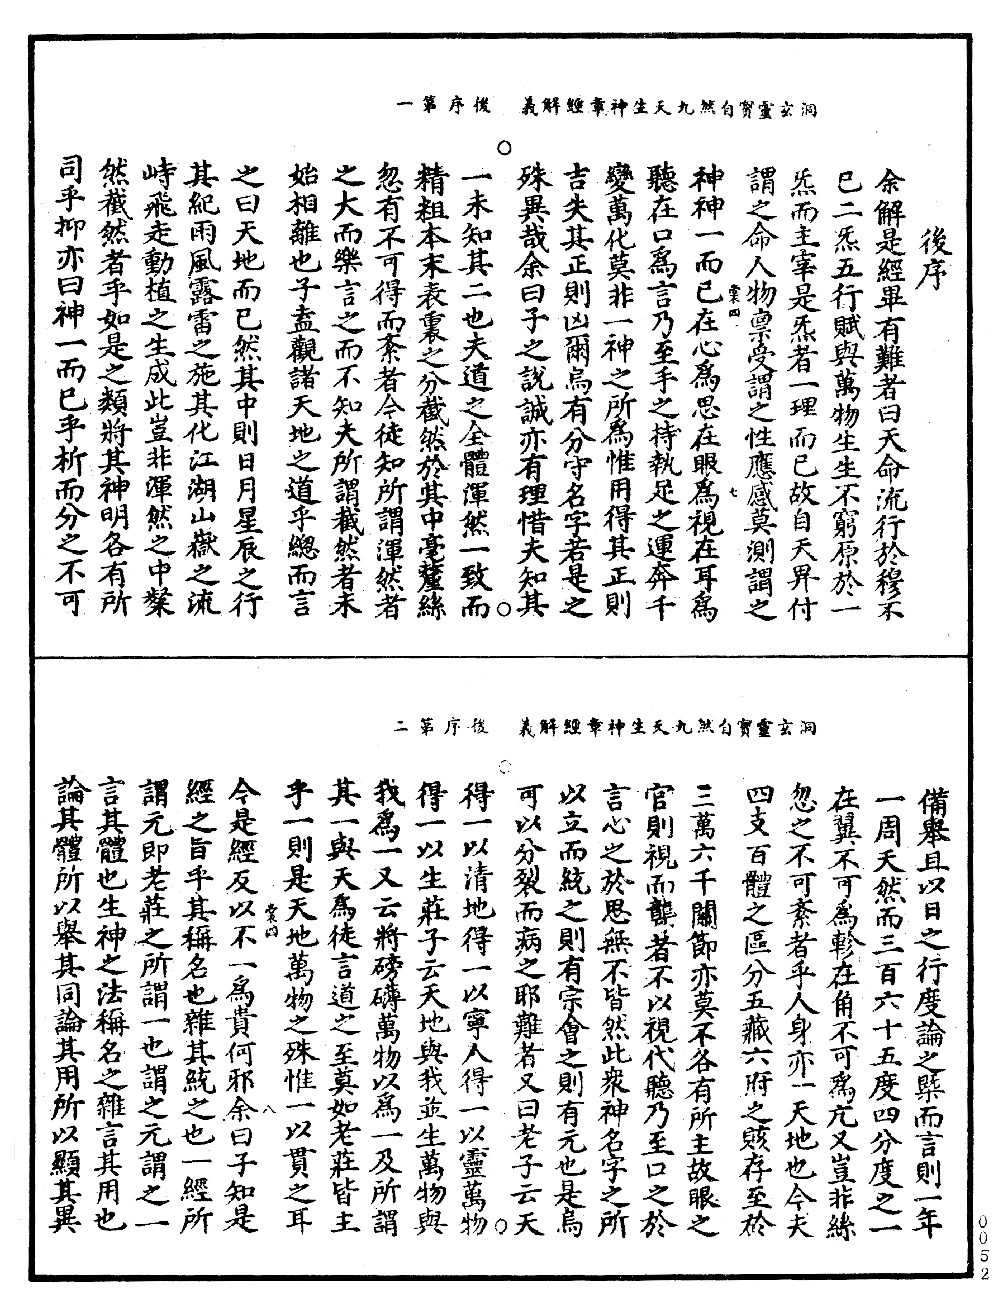 洞玄靈寳自然九天生神章經解義　後序第一
後序
余解是經畢有難者曰天命流行於穆不
已二炁五行賦與萬物生生不窮原於一
炁而主宰是炁者一理而已故自天畀付
謂之命人物禀受謂之性應感莫測謂之
神神一而已在心爲思在眼爲視在耳爲
聽在口爲言乃至手之持執足之運奔千
變萬化莫非一神之所爲惟用得其正則
吉失其正則凶爾烏有分守名字若是之
殊異哉余曰子之說誠亦有理惜夫知其
一未知其二也夫道之全體渾然一致而
精粗本末表裏之分截然於其中毫釐絲
忽有不可得而紊者今徒知所謂渾然者
之大而樂言之而不知夫所謂截然者未
始相離也子盍觀諸天地之道乎緫而言
之曰天地而已然其中則日月星辰之行
其紀雨風露雷之施其化江湖山嶽之流
峙飛走動植之生成此豈非渾然之中粲
然截然者乎如是之類將其神明各有所
司乎抑亦曰神一而已乎析而分之不可
洞玄靈寳自然九天生神章經解義　後序第二
備舉且以日之行度論之槩而言則一年
一周天然而三百六十五度四分度之一
在翼不可爲軫在角不可爲亢又豈非絲
忽之不可紊者乎人身亦一天地也今夫
四支百體之區分五藏六府之賅存至於
三萬六千關節亦莫不各有所主故眼之
官則視而聾者不以視代聽乃至口之於
言心之於思無不皆然此衆神名字之所
以立而統之則有宗會之則有元也是烏
可以分裂而病之耶難者又曰老子云天
得一以清地得一以寧人得一以靈萬物
得一以生莊子云天地與我並生萬物與
我爲一又云將磅礴萬物以爲一及所謂
其一與天爲徒言道之至莫如老莊皆主
乎一則是天地萬物之殊惟一以貫之耳
今是經反以不一爲貴何邪余曰子知是
經之旨乎其稱名也雜其統之也一經所
謂元即老莊之所謂一也謂之元謂之一
言其體也生神之法稱名之雜言其用也
論其體所以舉其同論其用所以顯其異
棠四
七
棠四
八
0052